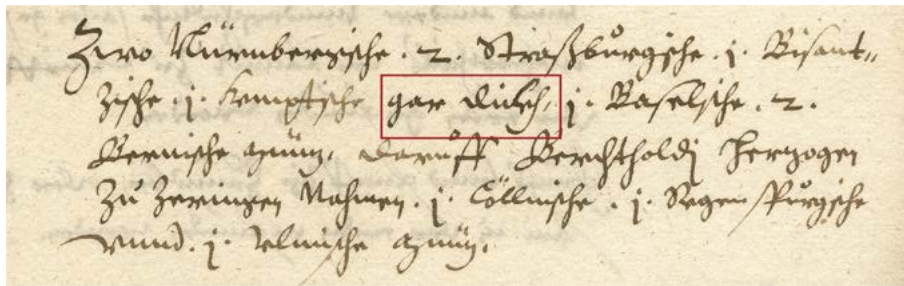 Zwo Nürnbergische . 2. Straßburgische . j. Bisant=
zische . j. Kemptische gar dickh, j. Baselische . 2.
Bernische Müntz, daruff Berchtholdj Hertzogen
Zu Zeringen Nahmen . j. Cöllnische . j. Regenspurgische
vnnd . j. Vlmische Müntz.